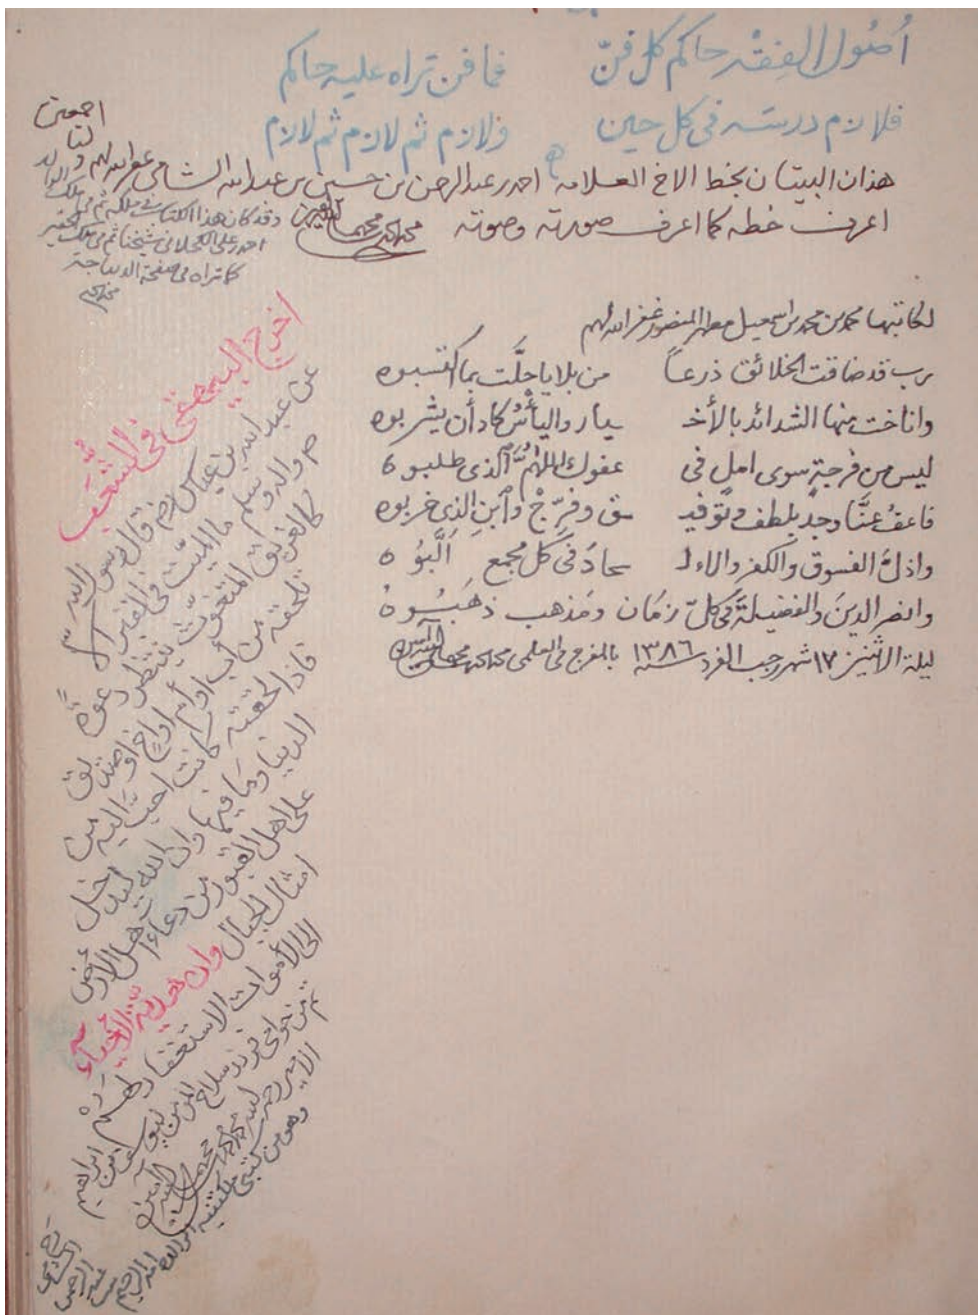 أصول الفقه حاكم كل فنّ فما فن تراه عليه حاكم
فلازم درسه في كل حين ولازم ثم لازم ثم لازم
هذان البيتان بخط الاخ العلامه احمد بن عبد الرحمن بن حسين بن عبد الله الشامي غفر الله لهم ولنا اجمعين
اعرف خطه كما اعرف صورته وصوته
وقد كان هذا الكتاب في ملكه ثم في ملك الوالد
احمد علي الكحلاني شيخنا ثم في ملك الحقير
كما تراه في صفحة الديباجة
لكاتبها محمد بن محمد بن اسمعيل مطهر المنصور غفر الله لهم
يرب قد ضاقت الخلائق ذرعاً من بلايا جلّت بما اكتسبوه
واناخت منها الشدائد بالأخـ يار واليأس كاد أن يشربوه
ليس من فرجةٍ سوى املٍ في عفوك اللهمّ الذي طلبوه
فاعفُ عنّا وجد بلطف وتوفيـ ـق وفرّج وابنِ الذي خربوه
واذلّ الفسوق والكفر والالـ ـحادُ في كل مجمع ألّبوه
وانصر الدين والفضيلة في كلّ زمان ومذهب ذهبوه
ليلة الاثنين ١٧ شهر رجب الفرد سنة ١٣٨٦
اخرج البيهقي في الشعب
عن عبد الله بن عباس رض قال قال رسول الله صلى
م واله وسلم ما الميّت في القبر إلا
كالغريق المتغوث ينتظر دعوة
تلحقه من أب او أم او أخ او صديق
فإذا لحقته كانت احب إليه من
الدنيا وما فيها وان الله ليدخل
على اهل القبور من دعاء اهل الارض
امثال الجبال وان هدية الأحياء
الى الأموات الاستغفار لهم